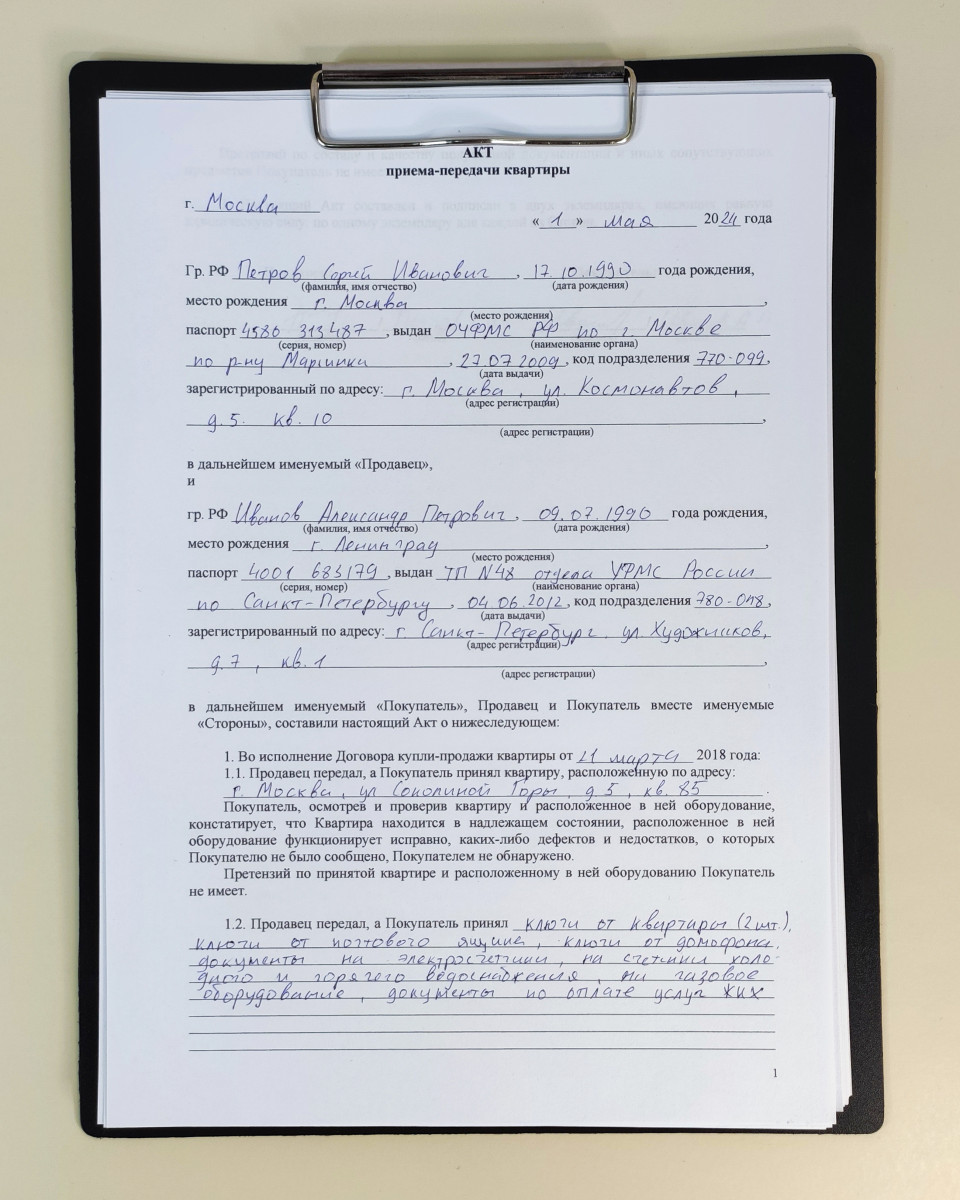 АКТ
приема-передачи квартиры
г. Москва
« 1 » мая 2024 года
Гр. РФ Петров Сергей Иванович, 17.10.1990 года рождения,
(фамилия, имя отчество) (дата рождения)
место рождения г. Москва,
(место рождения)
паспорт 4580 313487, выдан ОУФМС РФ по г. Москве
(серия, номер) (наименование органа)
по р-ну Марьинка, 27.07.2009, код подразделения 770-099,
(дата выдачи)
зарегистрированный по адресу: г. Москва, ул. Космонавтов,
(адрес регистрации)
д.5. кв. 10,
(адрес регистрации)
в дальнейшем именуемый «Продавец»,
и
гр. РФ Иванов Александр Петрович, 09.07.1990 года рождения,
(фамилия, имя отчество) (дата рождения)
место рождения г. Ленинград,
(место рождения)
паспорт 4001 683179, выдан ТП №48 отдела УФМС России
(серия, номер) (наименование органа)
по Санкт-Петербургу, 04.06.2012, код подразделения 780-048,
(дата выдачи)
зарегистрированный по адресу: г. Санкт-Петербург. ул. Художников,
(адрес регистрации)
д.7, кв.1,
(адрес регистрации)
в дальнейшем именуемый «Покупатель», Продавец и Покупатель вместе именуемые
«Стороны», составили настоящий Акт о нижеследующем:
1. Во исполнение Договора купли-продажи квартиры от 11 марта 2018 года:
1.1. Продавец передал, а Покупатель принял квартиру, расположенную по адресу:
г. Москва, ул Соколиной Горы, д 5, кв. 85.
Покупатель, осмотрев и проверив квартиру и расположенное в ней оборудование,
констатирует, что Квартира находится в надлежащем состоянии, расположенное в ней
оборудование функционирует исправно, каких-либо дефектов и недостатков, о которых
Покупателю не было сообщено, Покупателем не обнаружено.
Претензий по принятой квартире и расположенному в ней оборудованию Покупатель
не имеет.
1.2. Продавец передал, а Покупатель принял ключи от квартиры (2 шт.),
ключи от почтового ящика, ключи от домофона,
документы на электросчетчики, на счетчики холо-
дного и горячего водоснабжения, на газовое
оборудование, документы по оплате услуг ЖКХ
1